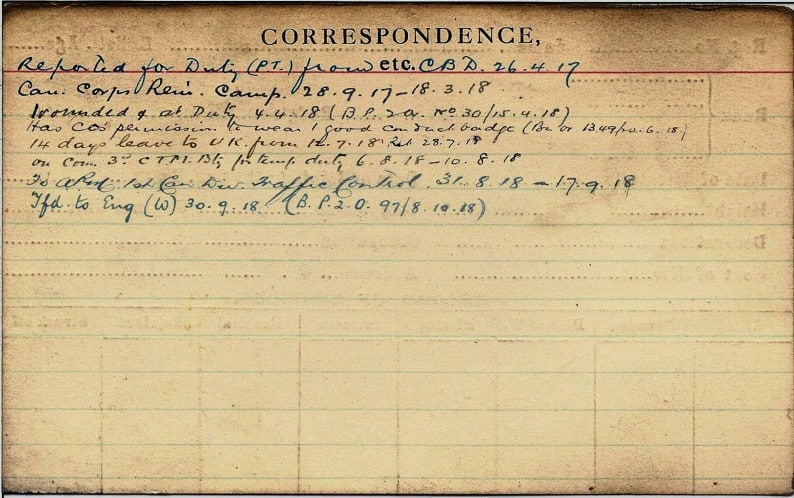 CORRESPONDENCE,
Reported for Duty (P.T.) from etc. C B D. 26.4.17
Can. Corps Rein. Camp. 28.9.17-18.3.18
Wounded & at Duty 4.4.18 (B.P.2.O. No 30/15.4.18)
Has COs permission to wear 1 good conduct badge (Bn Or 1349/20.6.18)
14 days leave to U.K. from 12.7.18 Ret 28.7.18
on Com. 3rd C T M Bty for temp. duty 6.8.18-10.8.18
To 1st Can Div. Traffic Control. 31.8.18 - 17.9.18
Tfd. to Eng (W) 30.9.18 (B.P.2.O. 97/8.10.18)